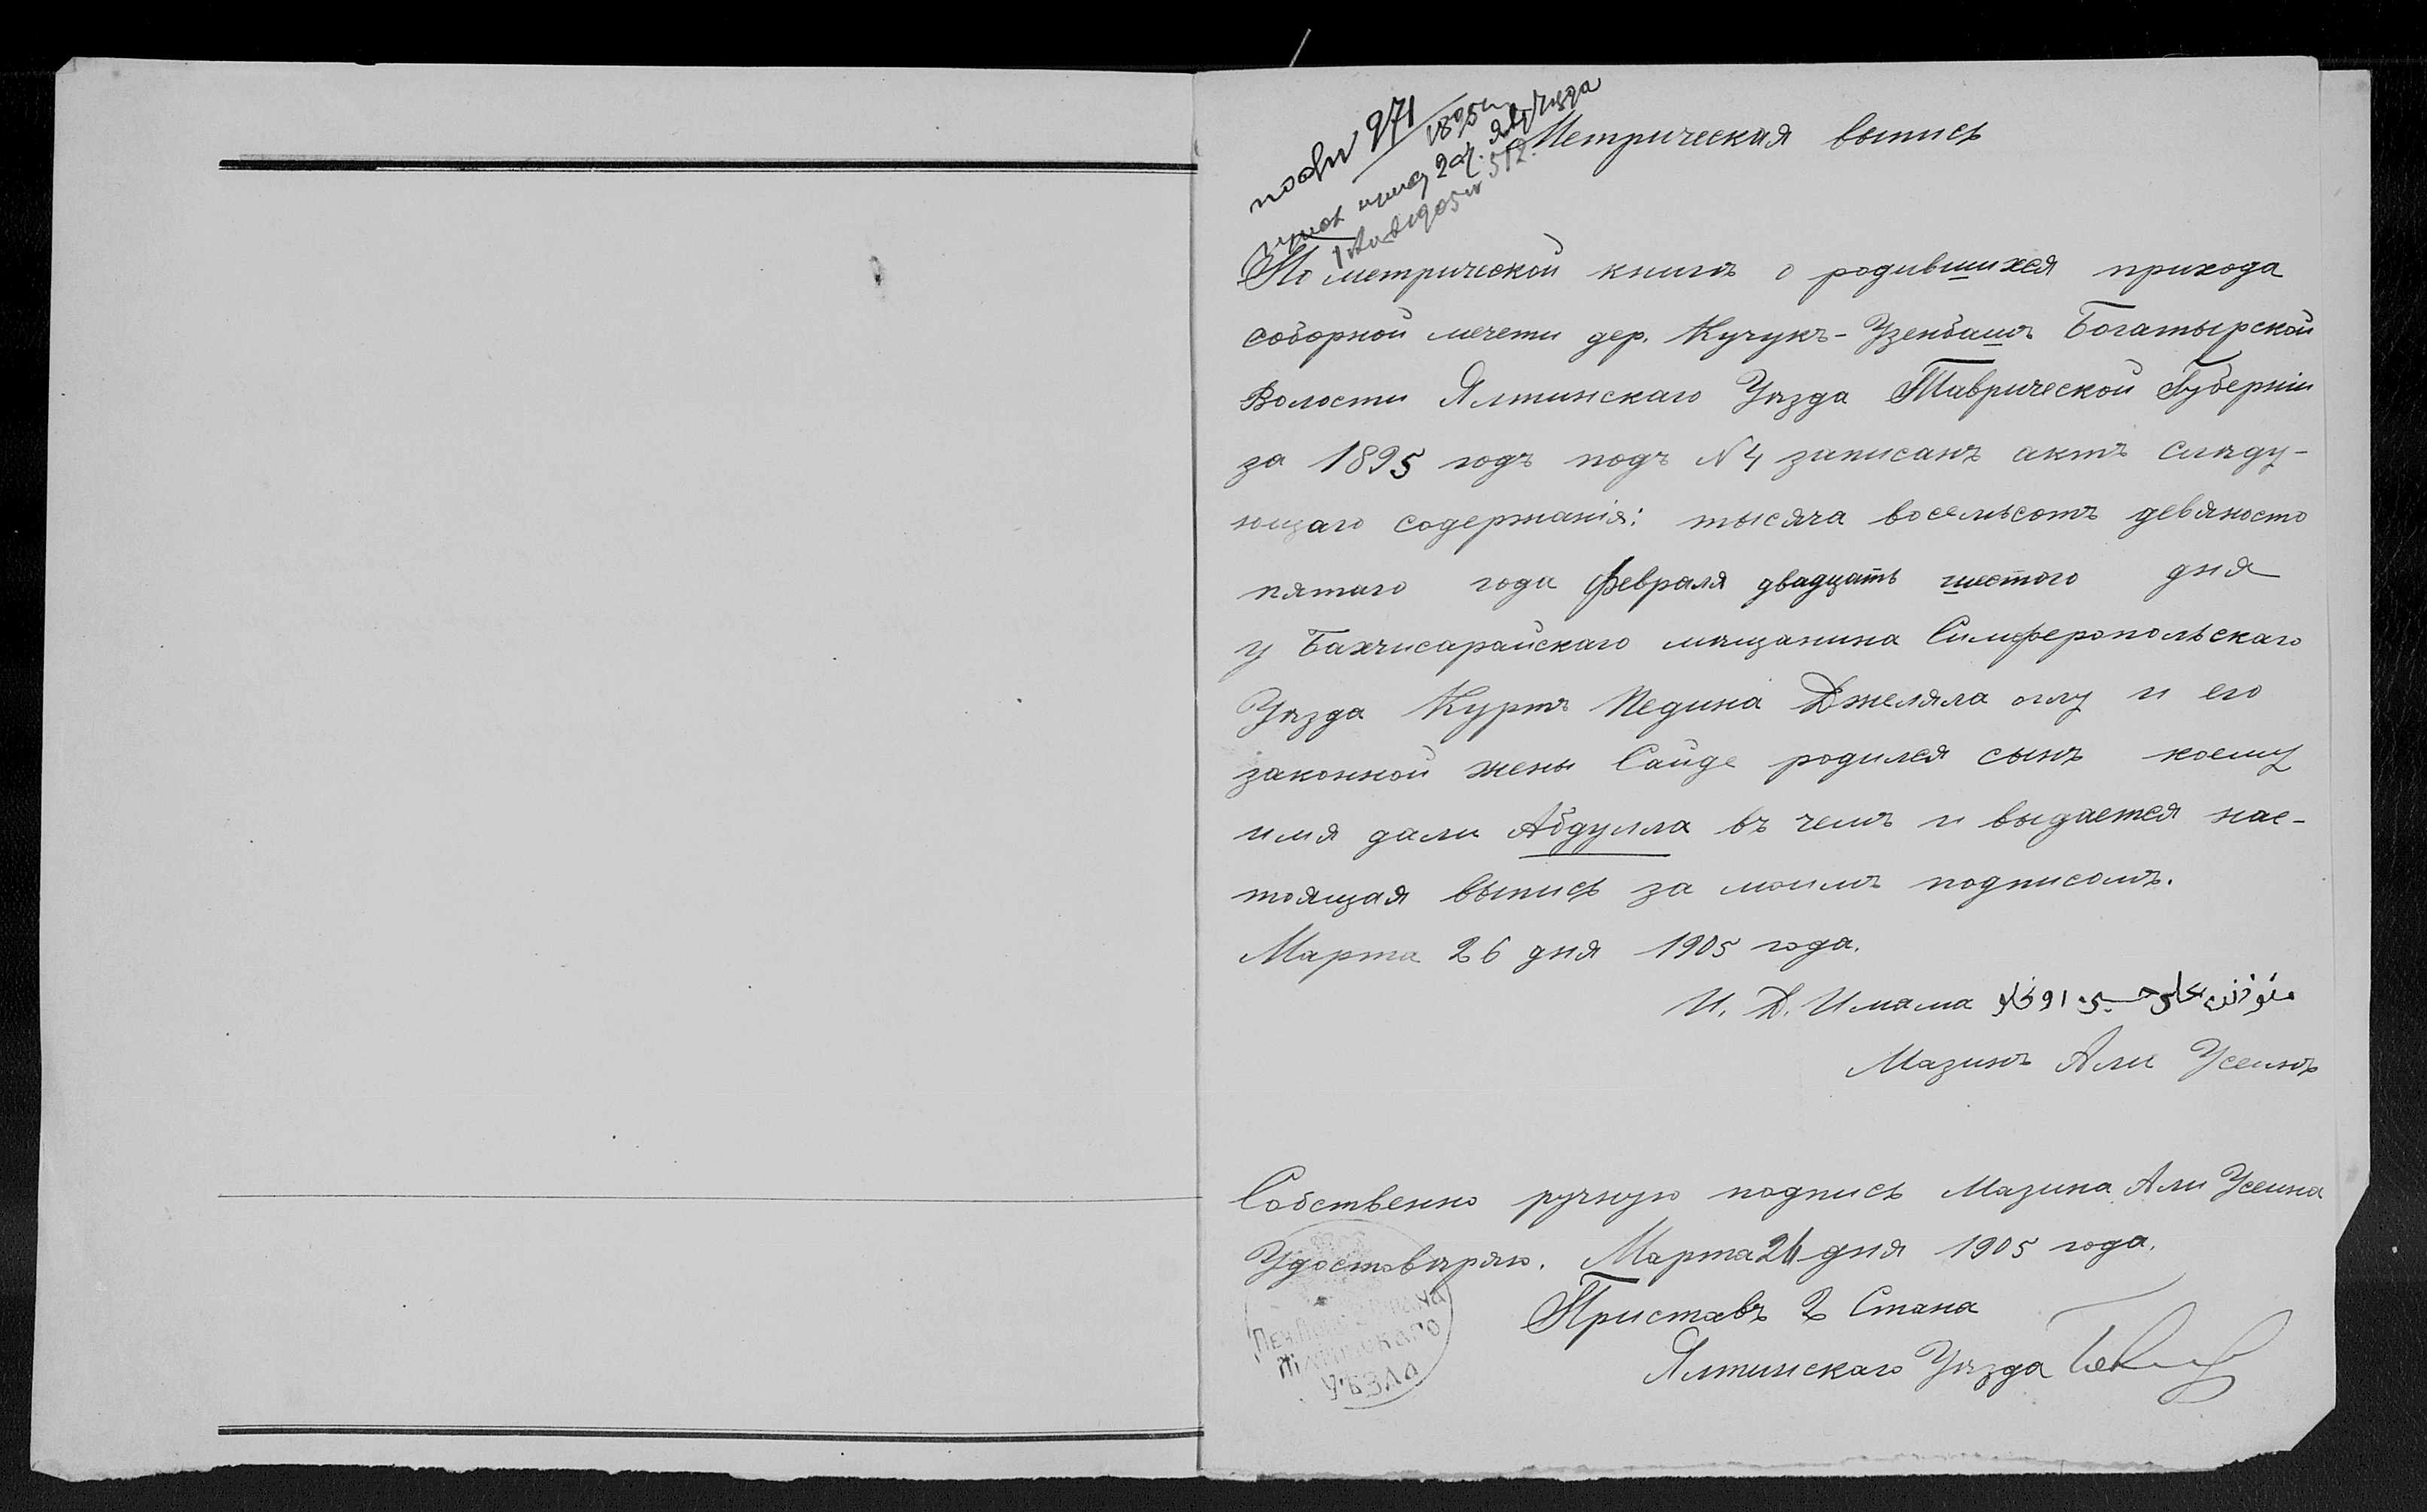 № 971
1895 г.
1905 г. № 512.
Метрическая выпись
По метрической книгѣ о родившихся прихода
соборной мечети дер. Кучукъ-Узенбашъ Богатырской
Волости Ялтинскаго Уѣзда Таврической Губерніи
за 1895 годъ подъ №4 записанъ актъ слѣду-
ющаго содержанія: тысяча восемьсотъ девяносто
пятаго года февраля двадцать шестого дня
у Бахчисарайскаго мѣщанина Симферопольскаго
Уѣзда Куртъ Педина Джеляла оглу и его
законной жены Сайде родился сынъ коему
имя дали Абдулла въ чемъ и выдается нас-
тоящая выпись за моимъ подписомъ.
Марта 26 дня 1905 года.
И. Д. Имама علی حسین اوغلو
Мазинъ Али Усеинъ
Собственно ручную подпись Мазина Али Усеина
Удостовѣряю. Марта 26 дня 1905 года.
Приставъ 2 Стана
Ялтинскаго Уѣзда
УѢЗДА